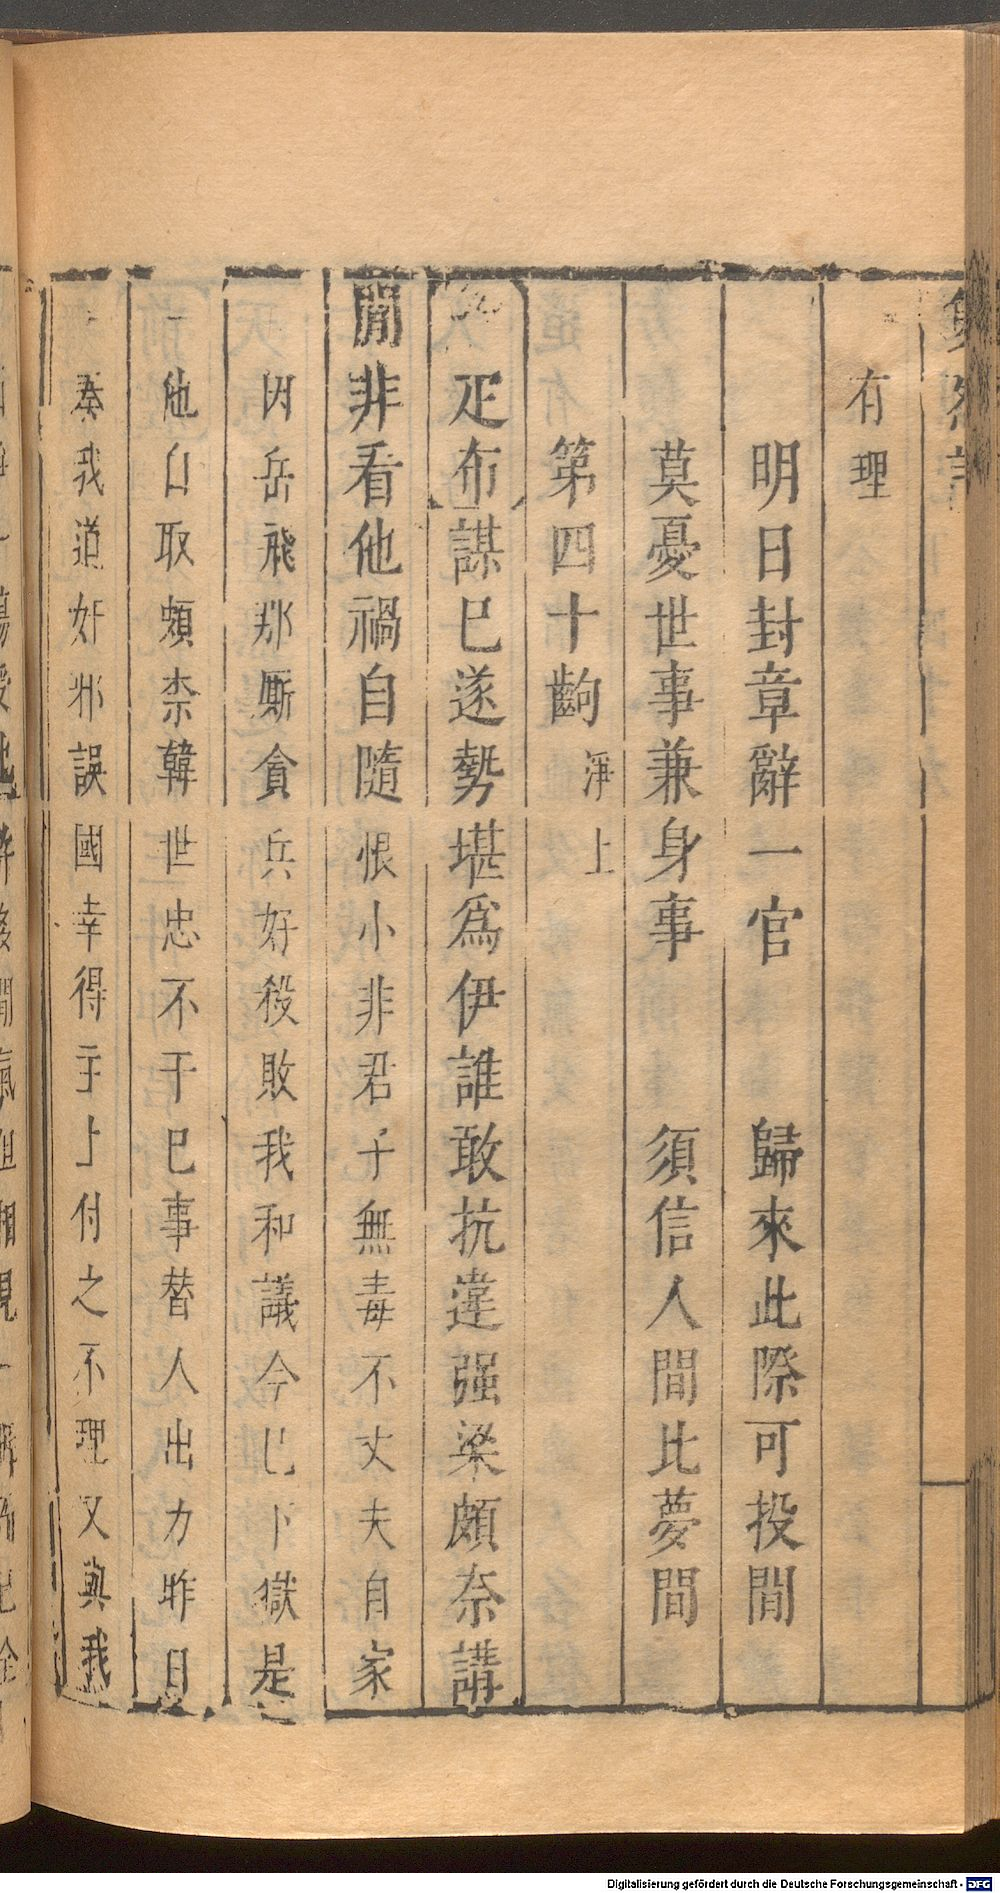 有理
明日封章辭一官　歸來此際可投閒
莫憂世事兼身事　須信人間比夢間
第四十齣　淨上
疋布謀巳遂勢堪爲伊誰敢抗違强梁頗奈講
閒非看他禍自隨恨小非君子無毒不丈夫自家
因岳飛那厮貪兵好殺敗我和議今巳下獄是
他自取頗柰韓世忠不干巳事替人出力昨日
奏我道奸邪誤國幸得于上付之不理又與我
Digitalisierung gefördert durch die Deutsche Forschungsgemeinschaft - DFG